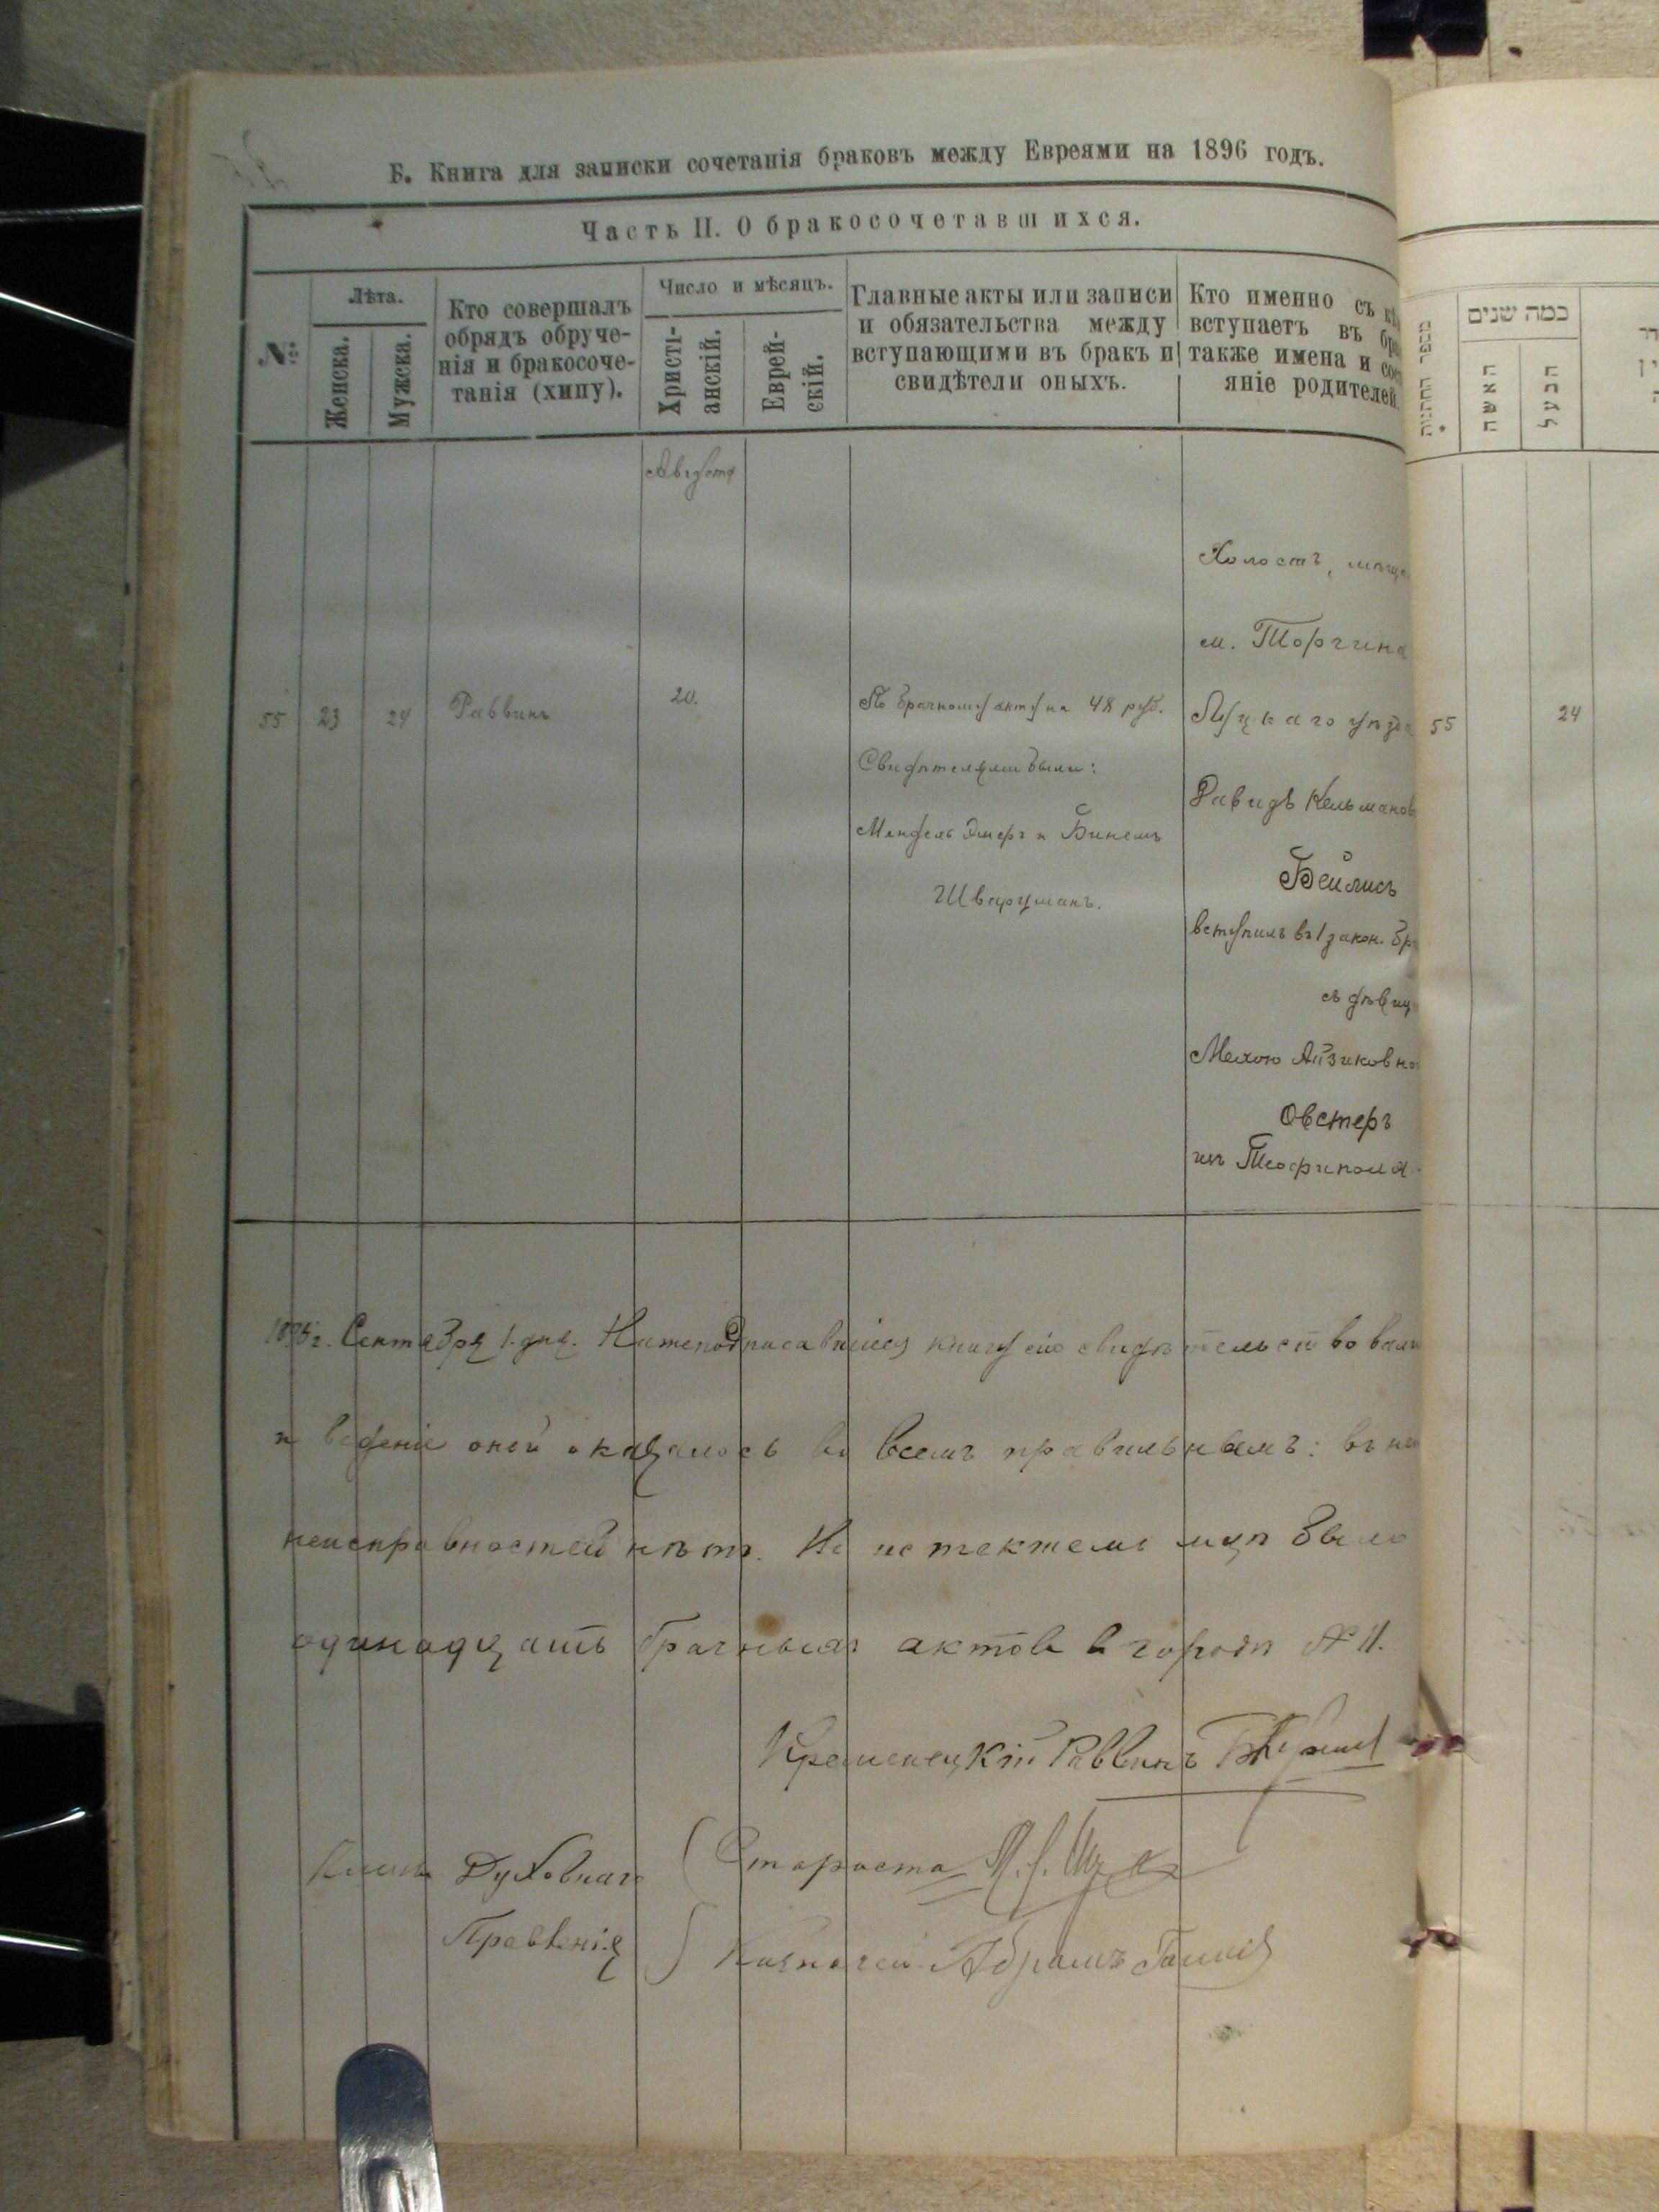 Б. Книга для записки сочетанія браковъ между Евреями на 1896 годъ.
Часть II. О бракосочетавшихся.
№
Лѣта.
Женска.
Мужска.
Кто совершалъ
обрядъ обруче-
нія и бракосоче-
танія (хипу).
Число и мѣсяцъ.
Христі-
анскій.
Еврей-
скій.
Главные акты или записи
и обязательства между
вступающими въ бракъ и
свидѣтели оныхъ.
Кто именно съ
вступаетъ въ
также имена и
яніе родителей
Августа
55
23
24
Раввинъ
20.
По брачному акту на 48 руб.
Свидѣтелями были:
Мендель и Бинемъ
Шварцманъ.
Холостъ,
м. Торчина
Луцкаго уѣзда
Давидъ Кельманов
Бейлисъ
вступилъ въ 1 закон.
съ дѣвиц
Айзиковно
Овстеръ
изъ Теофиполя
1896 г. Сентября 1 дня. Нижеподписавшіеся книгу сію свидѣтельствовали
и веденіе оной оказалось во всемъ правильнымъ: въ
неисправностей нѣтъ. было
одинадцать брачныхъ актовъ в городѣ № 11.
Кременецкій Раввинъ
Духовнаго
Правленія
Староста
Казначей Абрамъ
מספר החתונות
כמה שנים
האשה
הבעל
55
24